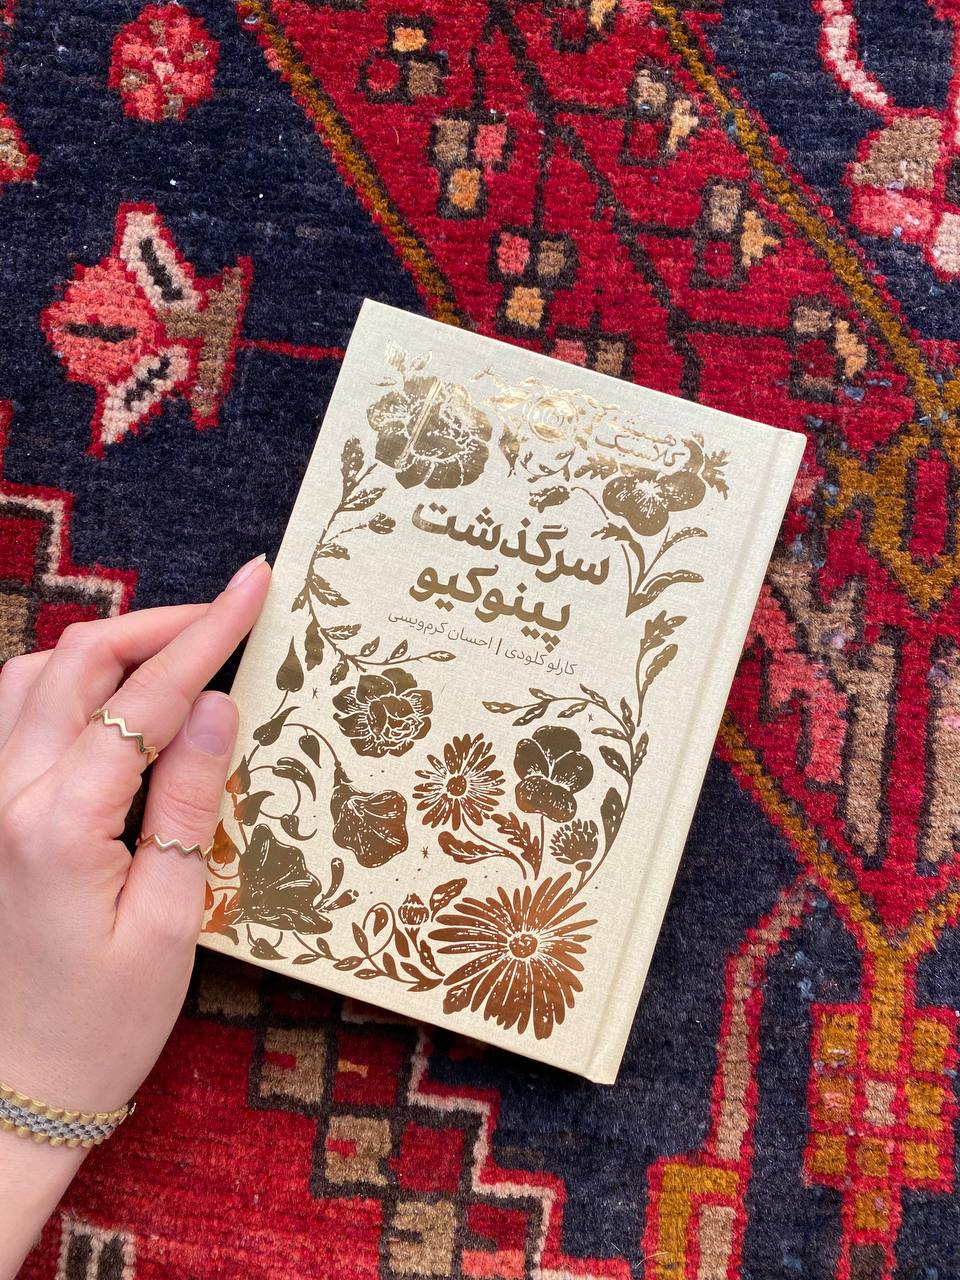 همیشه
کلاسیک
سرگذشت
پینوکیو
کارلو کلودی | احسان کرم‌ویسی